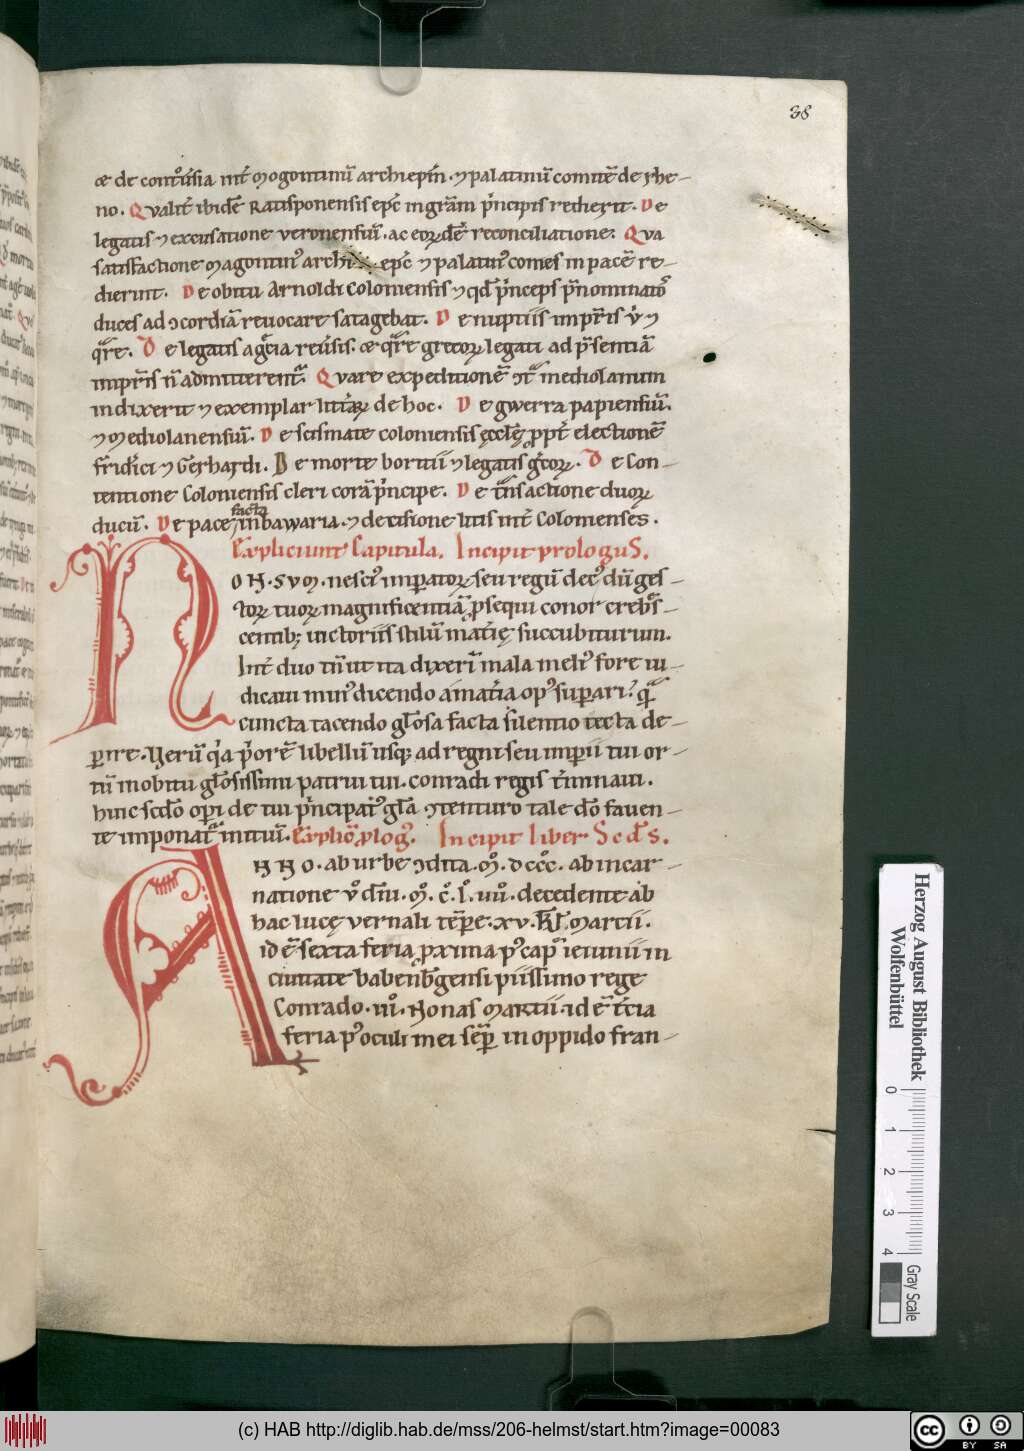 38
æ de contouͥsia int̄ mogontinū archiepīn. ⁊ palatinū comitē de rhe-
no. Qualit̄ ibidē Ratisponensis ep̄c ingrām p̄ncipis redierit. De
legatis ⁊ excusatione veronensiū. ac eorꝫdē reconciliatione. Qua
satisfactione magontinꝰ archi ep̄c ⁊ palatinꝰ comes in pacē re-
dierint. De obitu Arnoldi Coloniensis ⁊ qd̄ p̄nceps p̄nominatos
duces ad ɔcordiā reuocare satagebat. De nuptiis imp̄ris
De legatis ac p̄sentiā
imp̄ris n̄ admitterent̄. Quare expeditionē ɔt̄ mediolanum
indixerit ⁊ exemplar litt̄arꝫ de hoc. De gwerra papiensiū.
⁊ mediolanensiū. De scismate coloniensis ęcclę̄ ꝓpt̄ electionē
frid̄ici ⁊ Gerhardi. De morte bortuii ⁊ legatis ḡcorꝫ. De con-
tentione Coloniensis cleri corā p̄ncipe. De t̄nsactione duorꝫ
ducū. De pace facta in bawaria. ⁊ decisione litis int̄ Colonienses.
Expliciunt Capitula. Incipit prologuS.
NON. SVM. nesciꝰ imꝑatorꝫ seu regū decꝰ dū ges-
torꝫ tuorꝫ magnificentiā ꝓsequi conor crebs̄-
centibꝫ uictoriis stilū mat̄ię succubiturum.
Int̄ duo tn̄ ut ita dixerī mala meliꝰ fore iu-
dicaui minꝰ dicendo a mat̄ia opꝰ suꝑari. q̄
cuncta tacendo gl̄osa facta silentio tecta de-
ꝑire. Uerū q̄a p̄orē libellū usqꝫ ad regni seu imꝑii tui or-
tū in obitu gl̄osissimi patrui tui. conradi regis t̄minaui.
huic sc̄do oꝑi de tui p̄ncipatꝰ gl̄a ɔtenturo tale dō fauen-
te imponat̄ initiū. Explic̄ ꝓlogꝰ. Incipit liber Scd̄s.
ANNO. ab urbe ɔdita. M̊. dccc̊. ab incar-
natione v̊ dn̄i. M̊. c̊. l̊. uu̇. decedente ab
hac lucę vernali tēꝑe. xv. kl̄. martii.
id ē sexta feria ꝓxima pꝰ cap̄ ieiunii in
ciuitate babenb̄gensi piissimo rege
Conrado. iii̊. Nonas Martii. id ē t̄cia
feria pꝰ oculi mei sēꝑ in oppido fran-
Herzog August Bibliothek
Wolfenbüttel
0
1
2
3
4
Gray Scale
(c) HAB http://diglib.hab.de/mss/206-helmst/start.htm?image=00083
cc BY SA